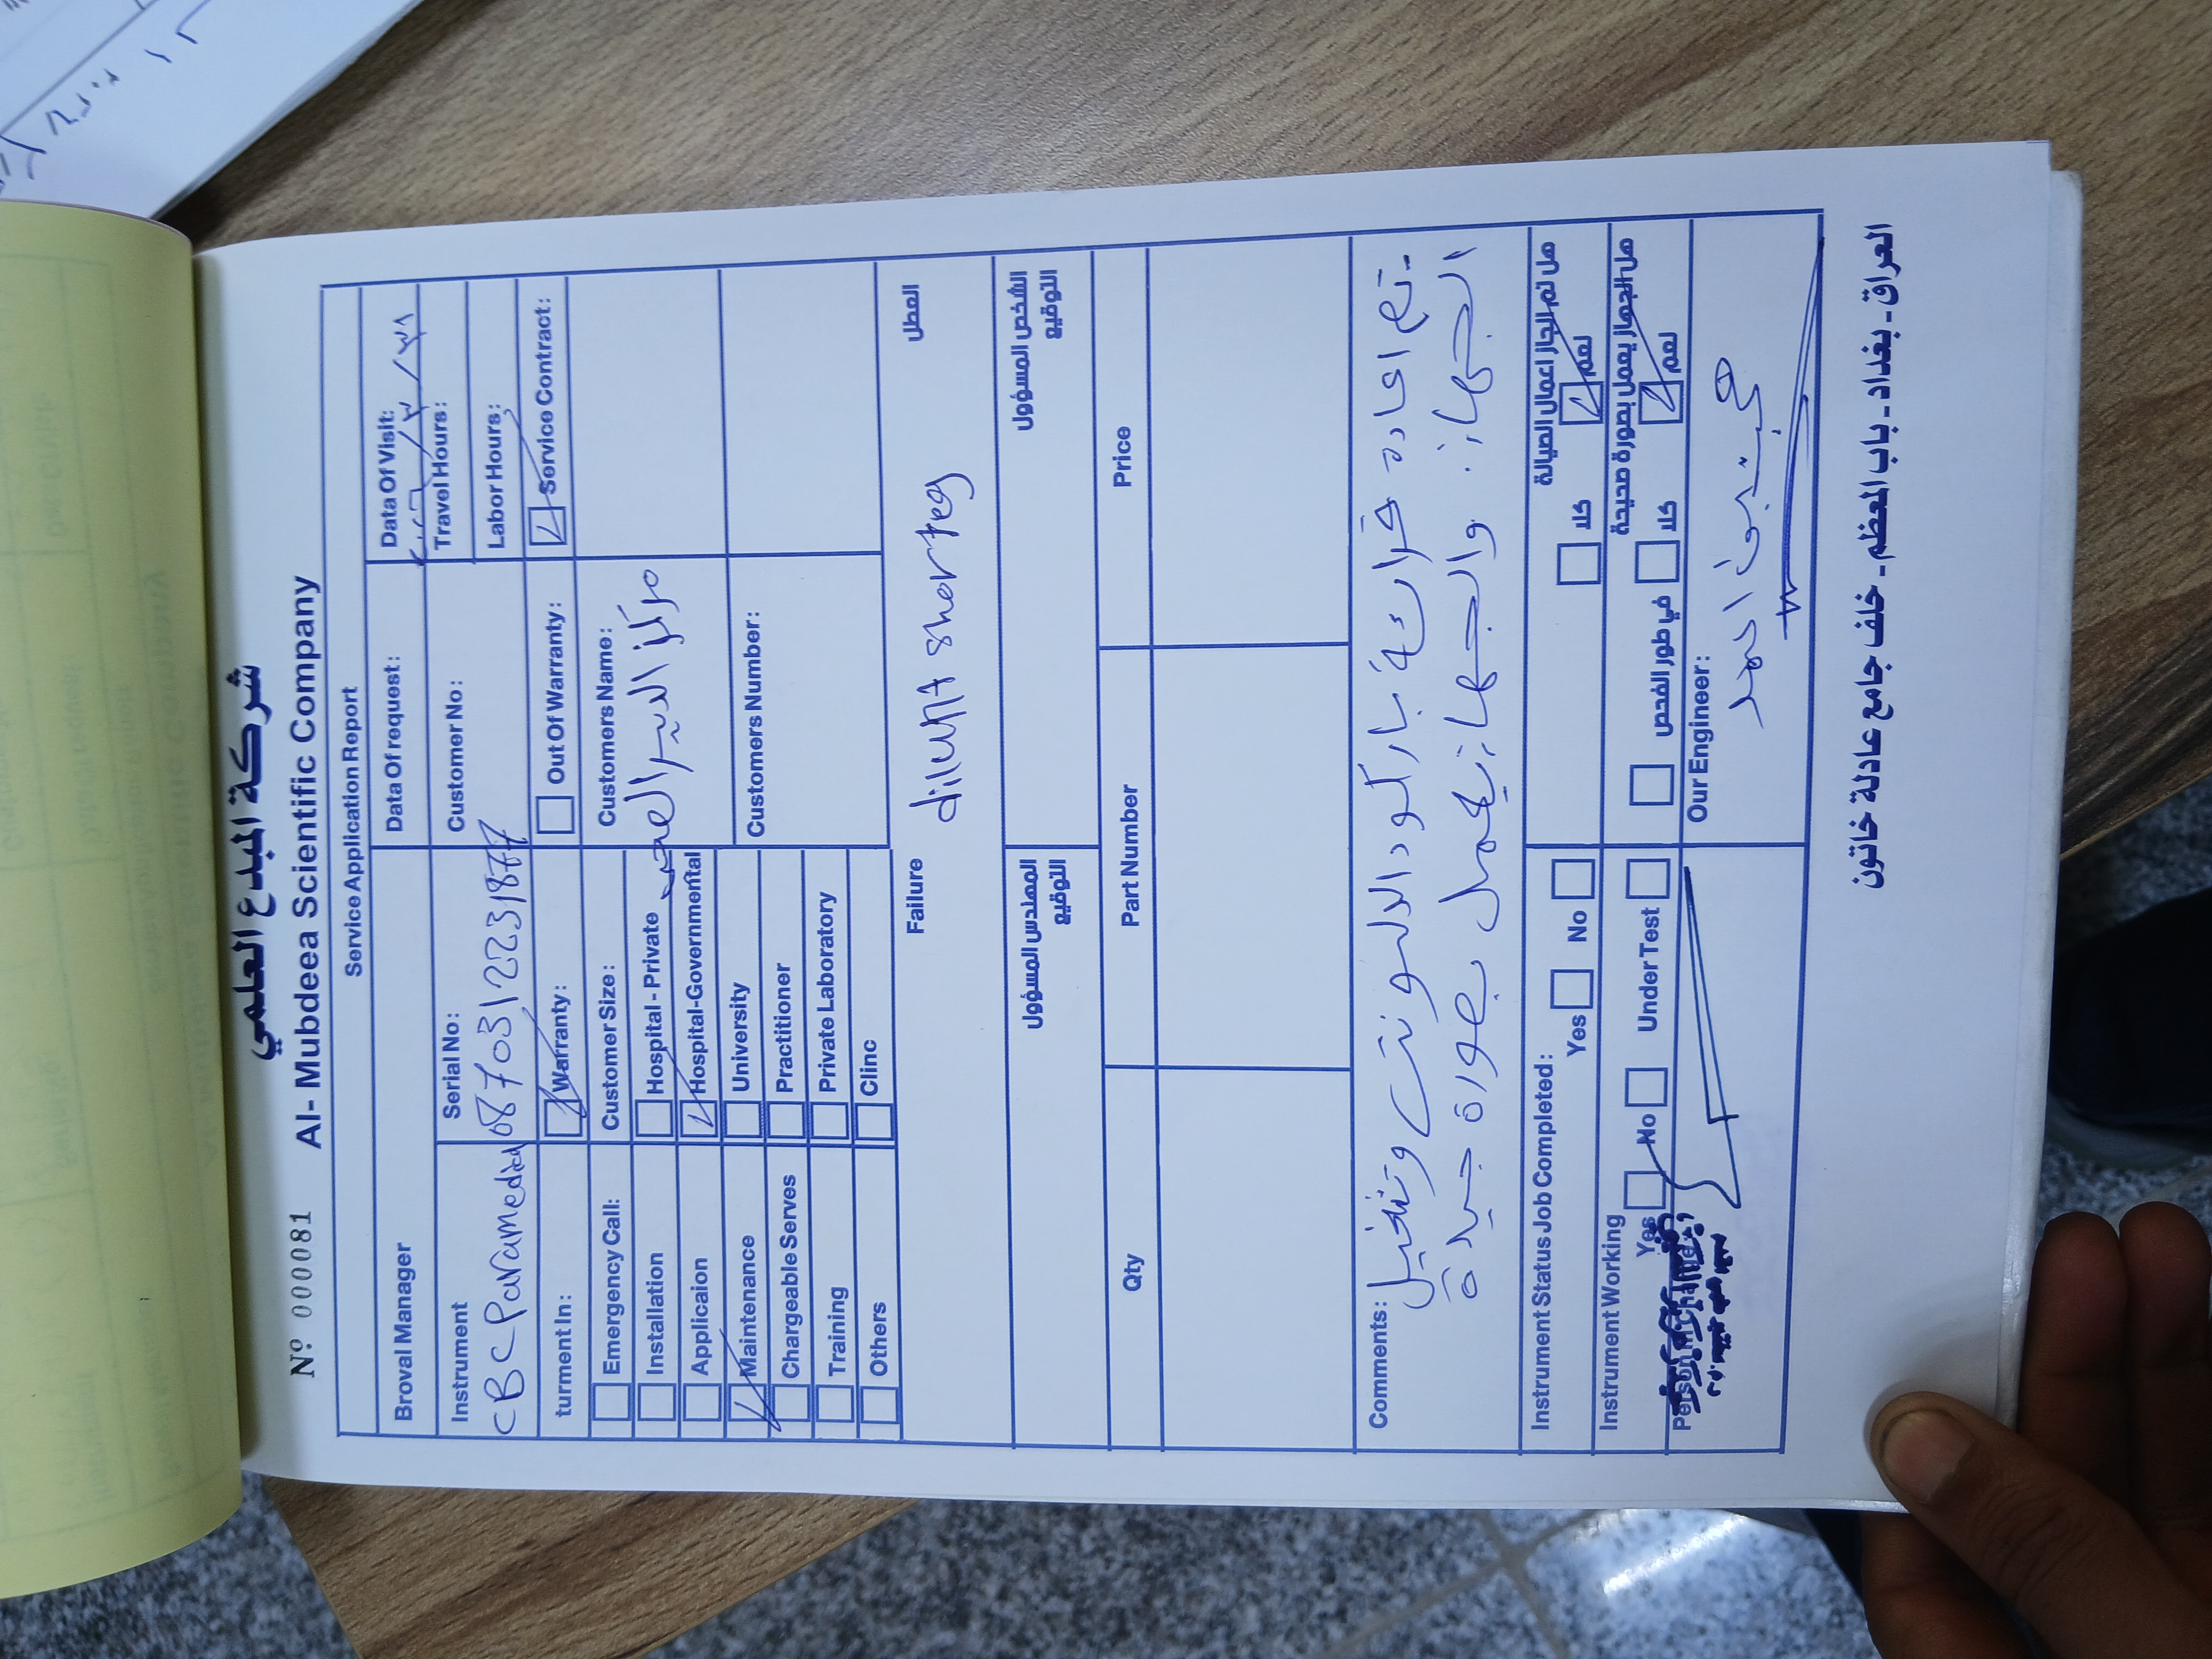 شركة المبدع العلمي
Nº 000081
Al- Mubdeea Scientific Company
Service Application Report
Broval Manager
Data Of request:
Data Of Visit:
Instrument
Serial No:
Customer No:
Travel Hours:
CBC Paramedical
Labor Hours:
turment In:
Warranty:
Out Of Warranty:
Service Contract:
Emergency Call:
Customer Size:
Customers Name:
Installation
Hospital - Private
مركز الدير الصحي
Applicaion
Hospital-Governmental
Maintenance
University
Customers Number:
Chargeable Serves
Practitioner
Training
Private Laboratory
Others
Clinc
Failure
العطل
dilunt shorteg
المهندس المسؤول
التوقيع
الشخص المسؤول
التوقيع
Qty
Part Number
Price
Comments:
- تم اعادة قراءة باركود الدالونت وتشغيل
الجهاز. والجهاز يعمل بصورة جيدة
Instrument Status Job Completed:
Yes
No
هل تم انجاز اعمال الصيانة
نعم
كلا
Instrument Working
Yes
No
Under Test
هل الجهاز يعمل بصورة صحيحة
نعم
كلا
في طور الفحص
Our Engineer:
العراق - بغداد - باب المعظم - خلف جامع عادلة خاتون